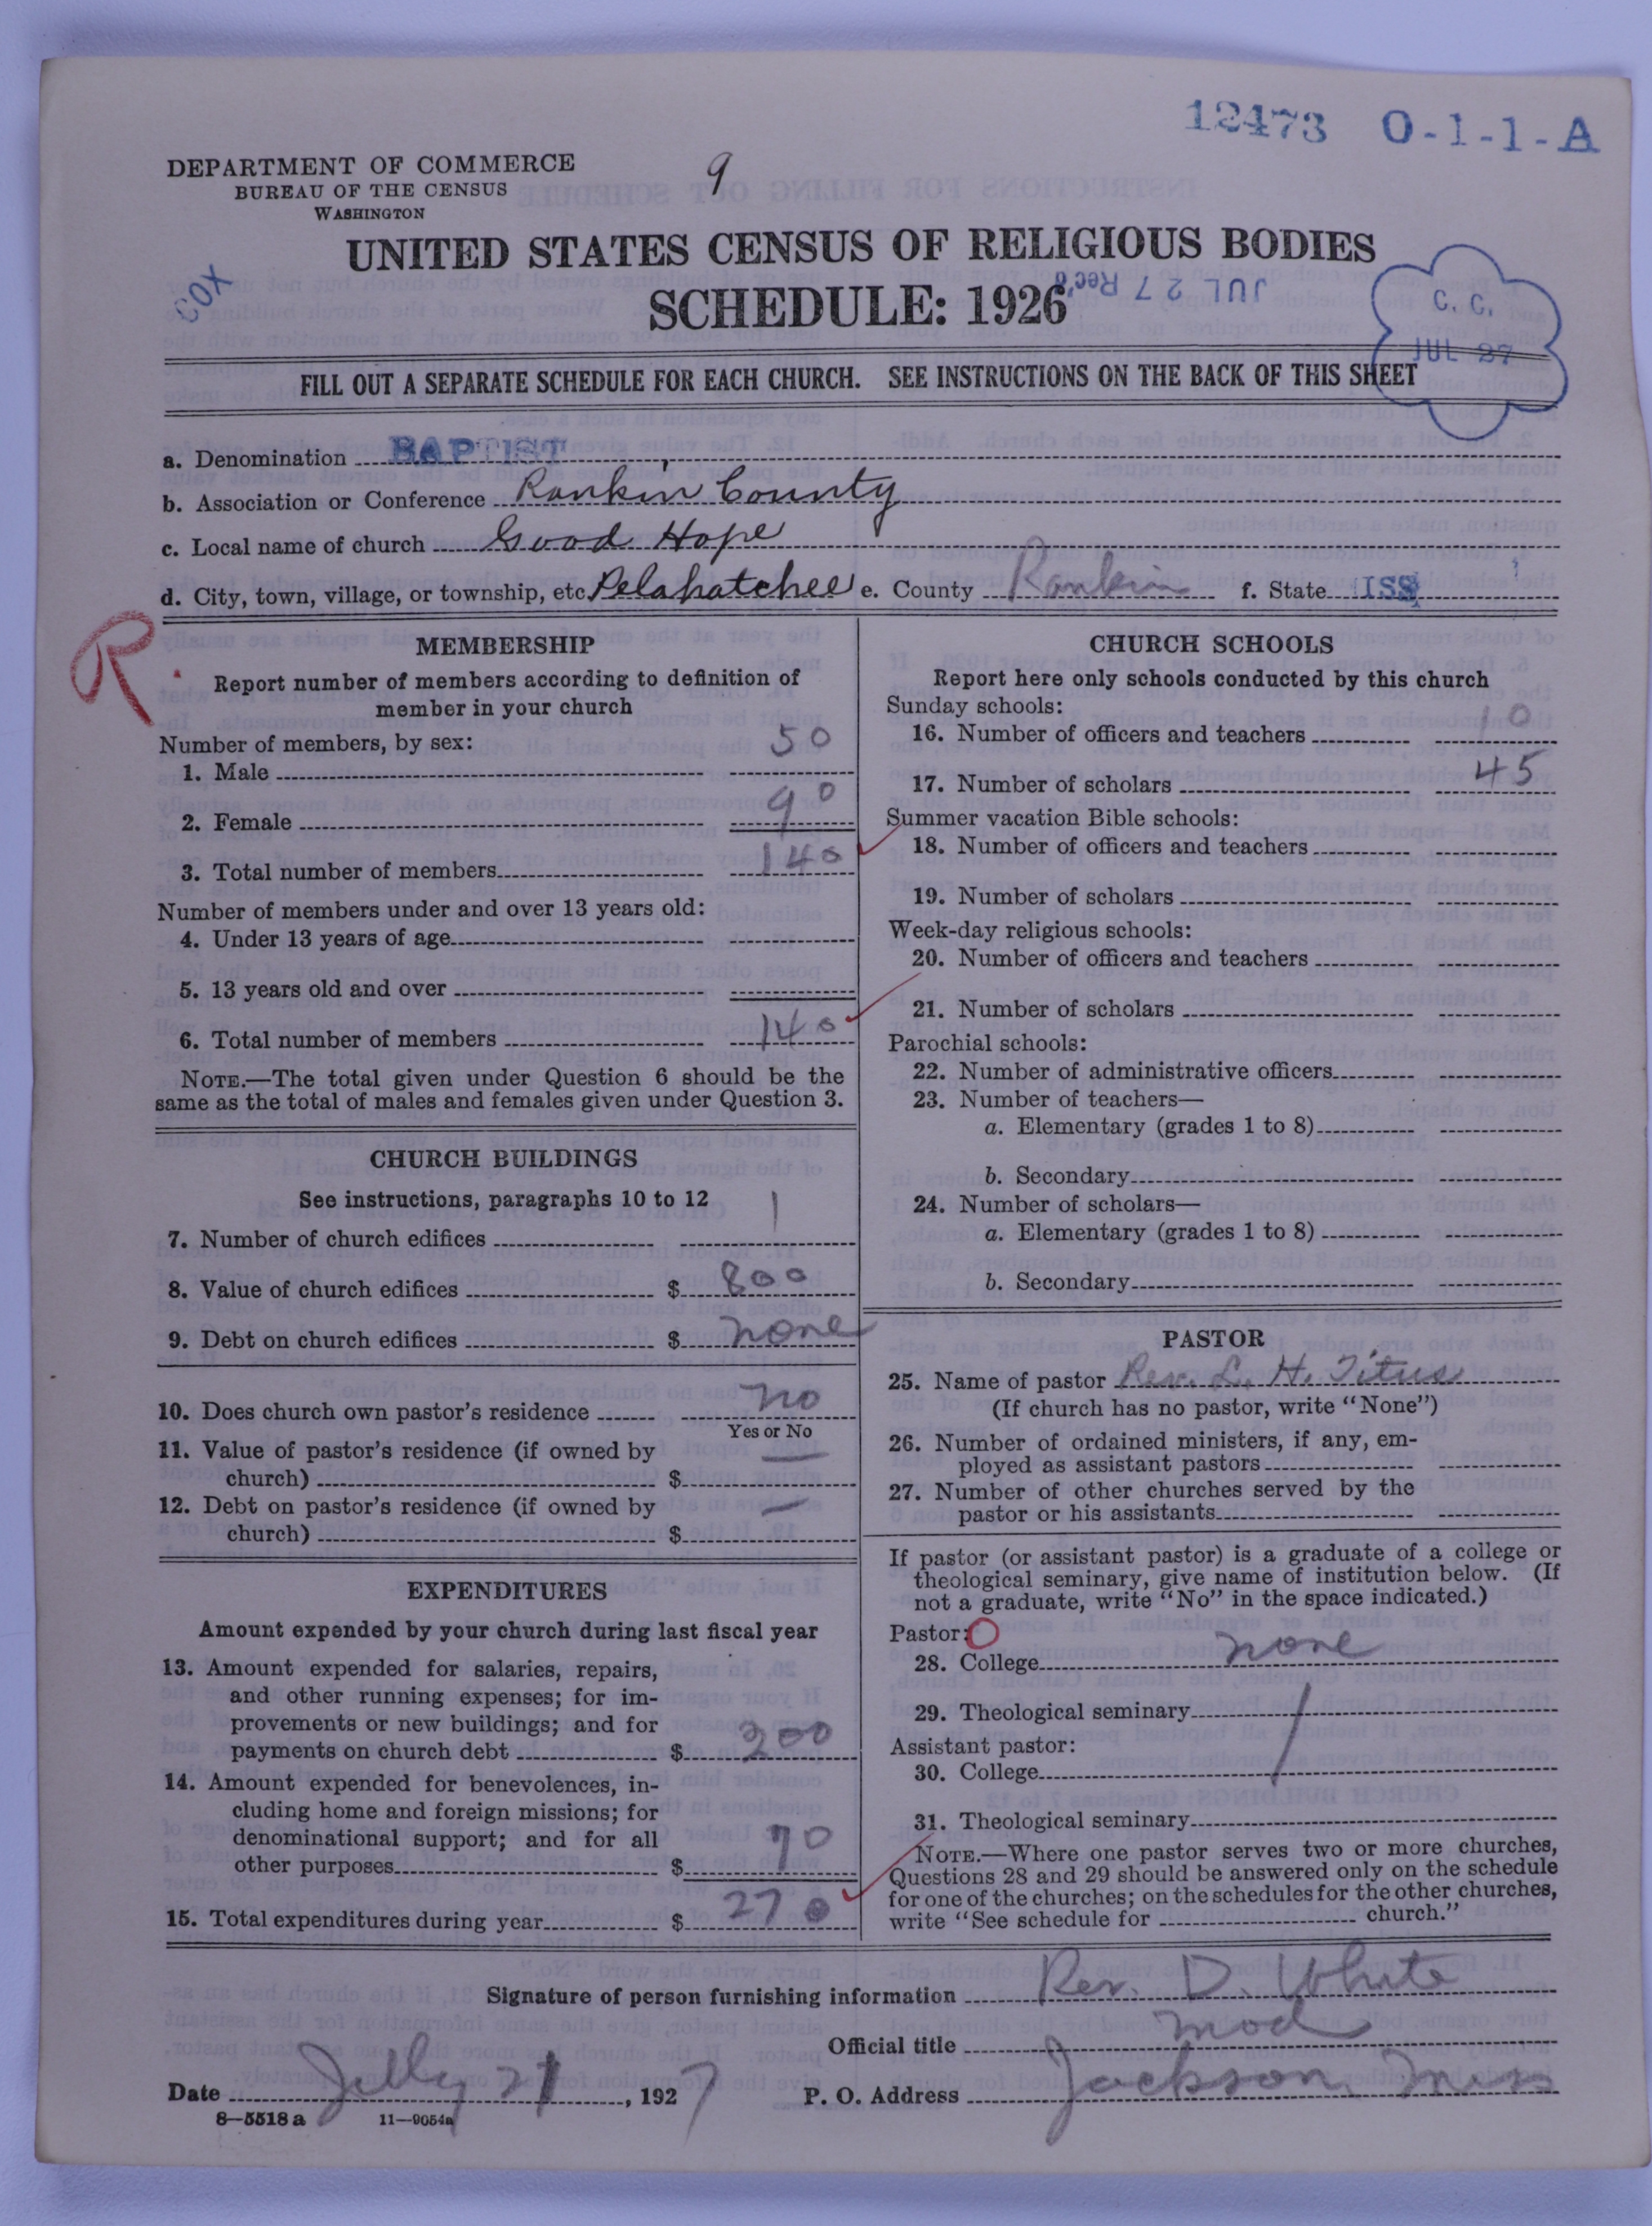 12473 O-1-1-A
DEPARTMENT OF COMMERCE
BUREAU OF THE CENSUS
WASHINGTON
9
UNITED STATES CENSUS OF RELIGIOUS BODIES
COX
SCHEDULE: 1926
JUL 27 Rec'd
C. C.
JUL 27
FILL OUT A SEPARATE SCHEDULE FOR EACH CHURCH. SEE INSTRUCTIONS ON THE BACK OF THIS SHEET
a. Denomination BAPTIST
b. Association or Conference Rankin County
c. Local name of church Good Hope
d. City, town, village, or township, etc. Pelahatchee e. County Rankin f. State ISS
R
MEMBERSHIP
Report number of members according to definition of
member in your church
Number of members, by sex:
1. Male 50
2. Female 90
3. Total number of members 140
Number of members under and over 13 years old:
4. Under 13 years of age
5. 13 years old and over
6. Total number of members 140
NOTE.—The total given under Question 6 should be the
same as the total of males and females given under Question 3.
CHURCH BUILDINGS
See instructions, paragraphs 10 to 12
7. Number of church edifices 1
8. Value of church edifices $ 800
9. Debt on church edifices $ none
10. Does church own pastor's residence no
Yes or No
11. Value of pastor's residence (if owned by
church) $ —
12. Debt on pastor's residence (if owned by
church) $ —
EXPENDITURES
Amount expended by your church during last fiscal year
13. Amount expended for salaries, repairs,
and other running expenses; for im-
provements or new buildings; and for
payments on church debt $ 200
14. Amount expended for benevolences, in-
cluding home and foreign missions; for
denominational support; and for all
other purposes $ 70
15. Total expenditures during year $ 270
CHURCH SCHOOLS
Report here only schools conducted by this church
Sunday schools:
16. Number of officers and teachers 10
17. Number of scholars 45
Summer vacation Bible schools:
18. Number of officers and teachers
19. Number of scholars
Week-day religious schools:
20. Number of officers and teachers
21. Number of scholars
Parochial schools:
22. Number of administrative officers
23. Number of teachers—
a. Elementary (grades 1 to 8)
b. Secondary
24. Number of scholars—
a. Elementary (grades 1 to 8)
b. Secondary
PASTOR
25. Name of pastor Rev. L. H. Titus
(If church has no pastor, write "None")
26. Number of ordained ministers, if any, em-
ployed as assistant pastors
27. Number of other churches served by the
pastor or his assistants
If pastor (or assistant pastor) is a graduate of a college or
theological seminary, give name of institution below. (If
not a graduate, write "No" in the space indicated.)
Pastor: O
28. College none
29. Theological seminary
Assistant pastor:
30. College
31. Theological seminary
NOTE.—Where one pastor serves two or more churches,
Questions 28 and 29 should be answered only on the schedule
for one of the churches; on the schedules for the other churches,
write "See schedule for church."
Signature of person furnishing information Rev. D. White
Official title mod
Date July 21, 1927 P. O. Address Jackson, Miss
8—5518 a 11—9054a